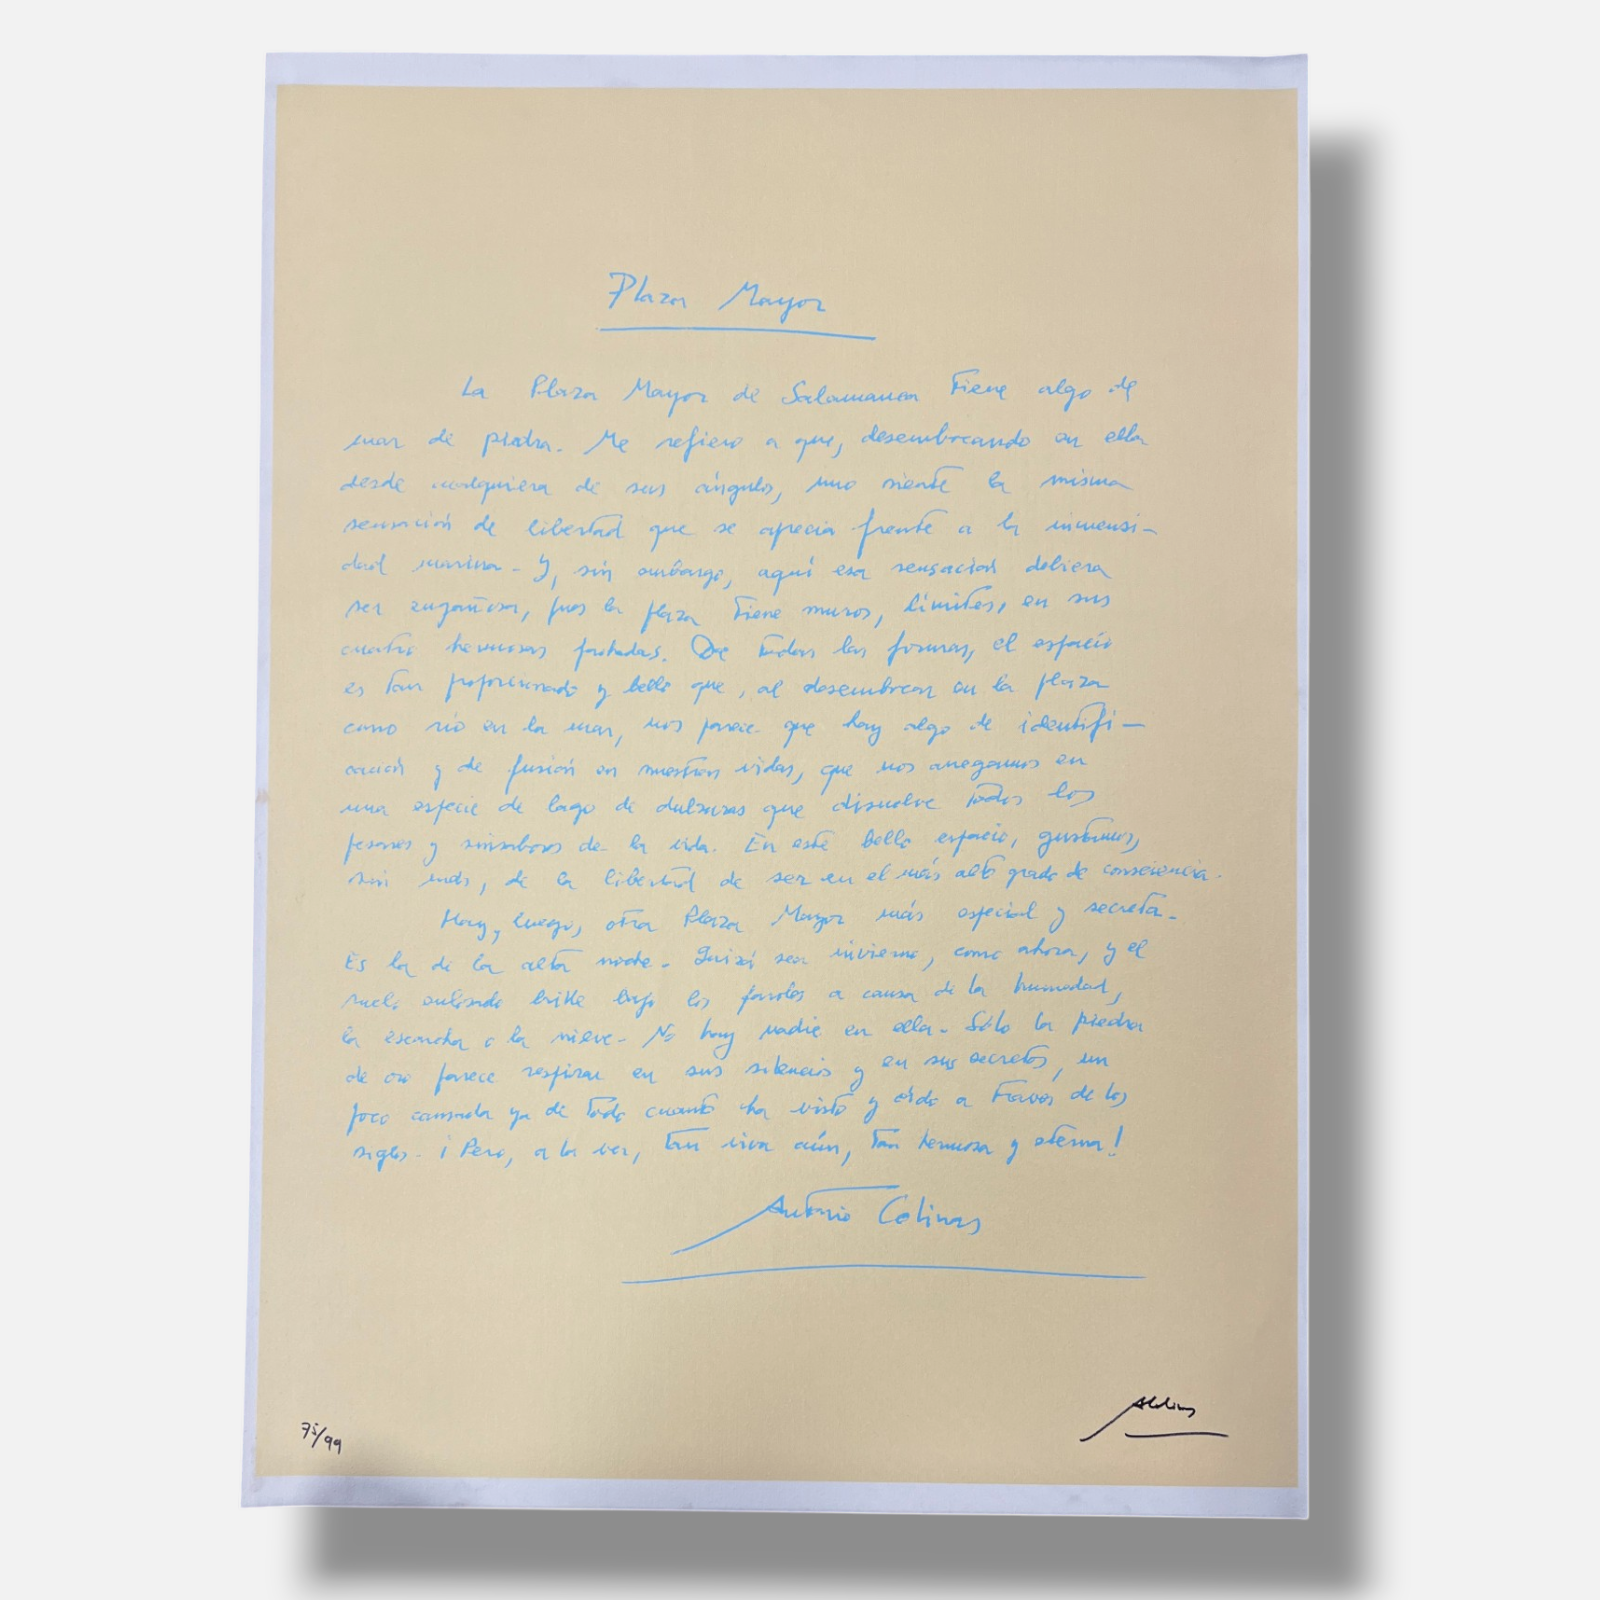 Plaza Mayor
La Plaza Mayor de Salamanca tiene algo de
mar de piedra. Me refiero a que, desembocando en ella
desde cualquiera de sus ángulos, uno siente la misma
sensación de libertad que se aprecia frente a la inmensi-
dad marina. Y, sin embargo, aquí esa sensación debiera
ser engañosa, pues la plaza tiene muros, límites, en sus
cuatro hermosas fachadas. De todas las formas, el espacio
es tan proporcionado y bello que, al desembocar en la plaza
como río en la mar, nos parece que hay algo de identifi-
cación y de fusión en nuestras vidas, que nos anegamos en
una especie de lago de dulzuras que disuelve todos los
pesares y sinsabores de la vida. En este bello espacio, gustamos,
sin más, de la libertad de ser en el más alto grado de consciencia.
Hay, luego, otra Plaza Mayor más especial y secreta.
Es la de la alta noche. Quizá sea invierno, como ahora, y el
suelo enlosado brille bajo los faroles a causa de la humedad,
la escarcha o la nieve. No hay nadie en ella. Sólo la piedra
de oro parece respirar en sus silencios y en sus secretos, un
poco cansada ya de todo cuanto ha visto y oído a través de los
siglos. ¡Pero, a la vez, tan viva aún, tan hermosa y eterna!
Antonio Colinas
75/99